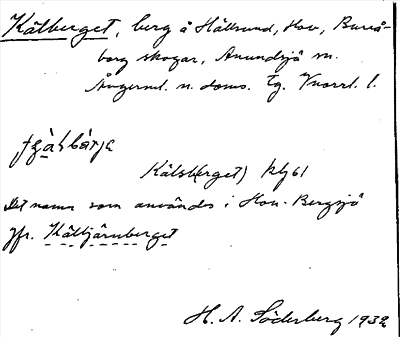 Kälberget, berg å Hällsund, Hov, Bureå-
borg skogar, Anundsjö sn.
Ångerml. n. doms. Tg. Vnorrl. l.
Kälsb(erget) kbg 61
Det namn som användes i Hov-Bergsjö
Jfr. Kältjärnberget
H. A. Söderberg 1932